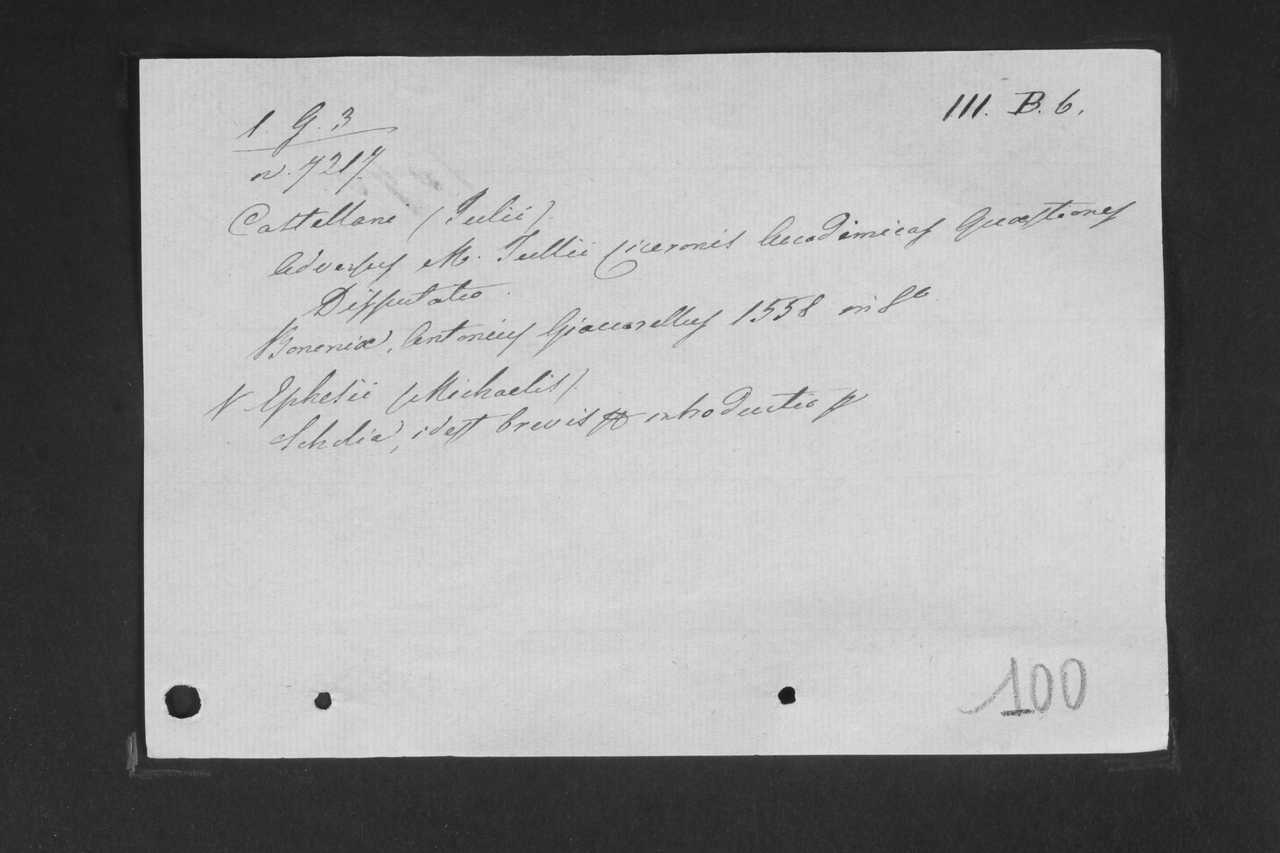 1. G. 3
III. B. 6.
n. 7217
Castellani (Julii)
Adversus M. Tullii Ciceronis Academicas Quæstiones
Disputatio.
Bononiæ, Antonius Giaccarellus 1558 in 8º
V Ephesii (Michaelis)
Scholia, idest brevis introductio
100